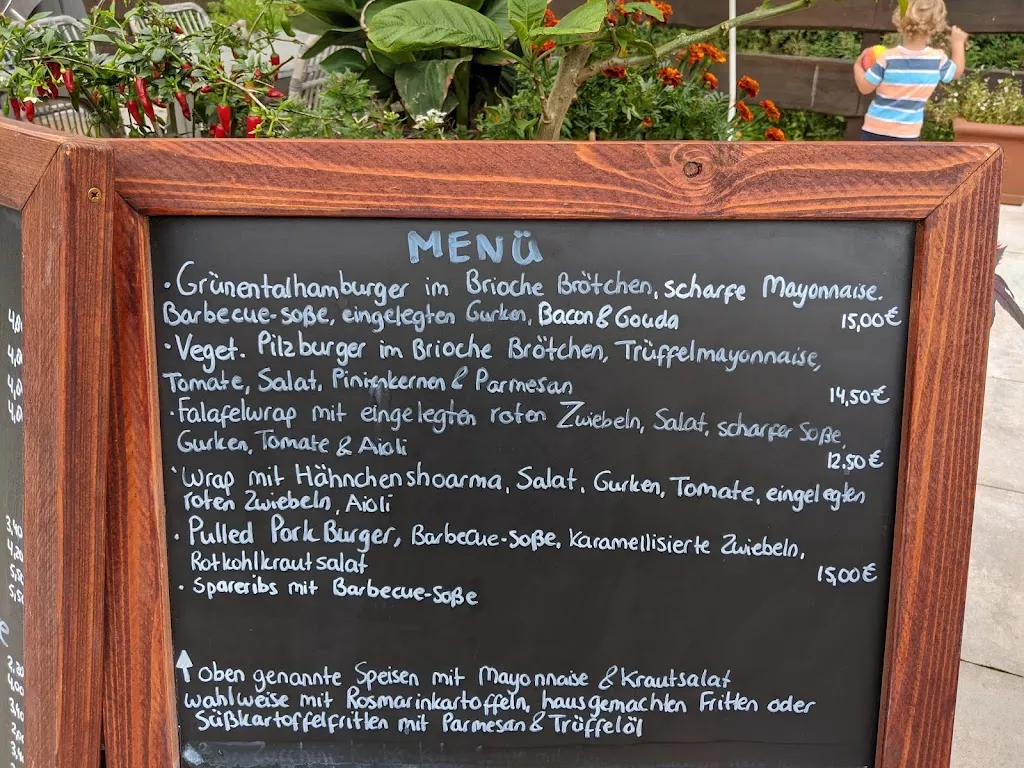 MENÜ
· Grünentalhamburger im Brioche Brötchen, scharfe Mayonnaise.
Barbecue-soße, eingelegten Gurken, Bacon & Gouda 15,00€
· Veget. Pilzburger im Brioche Brötchen, Trüffelmayonnaise,
Tomate, Salat, Pinienkernen & Parmesan 14,50€
· Falafelwrap mit eingelegten roten Zwiebeln, Salat, scharfer Soße,
Gurken, Tomate & Aioli 12.50€
· Wrap mit Hähnchenshoarma, Salat, Gurken, Tomate, eingelegten
roten Zwiebeln, Aioli
· Pulled Pork Burger, Barbecue-soße, Karamellisierte Zwiebeln,
Rotkohlkrautsalat 15,00€
· Spareribs mit Barbecue-Soße
↑ Oben genannte Speisen mit Mayonnaise & Krautsalat
wahlweise mit Rosmarinkartoffeln, hausgemachten Fritten oder
Süßkartoffelfritten mit Parmesan & Trüffelöl